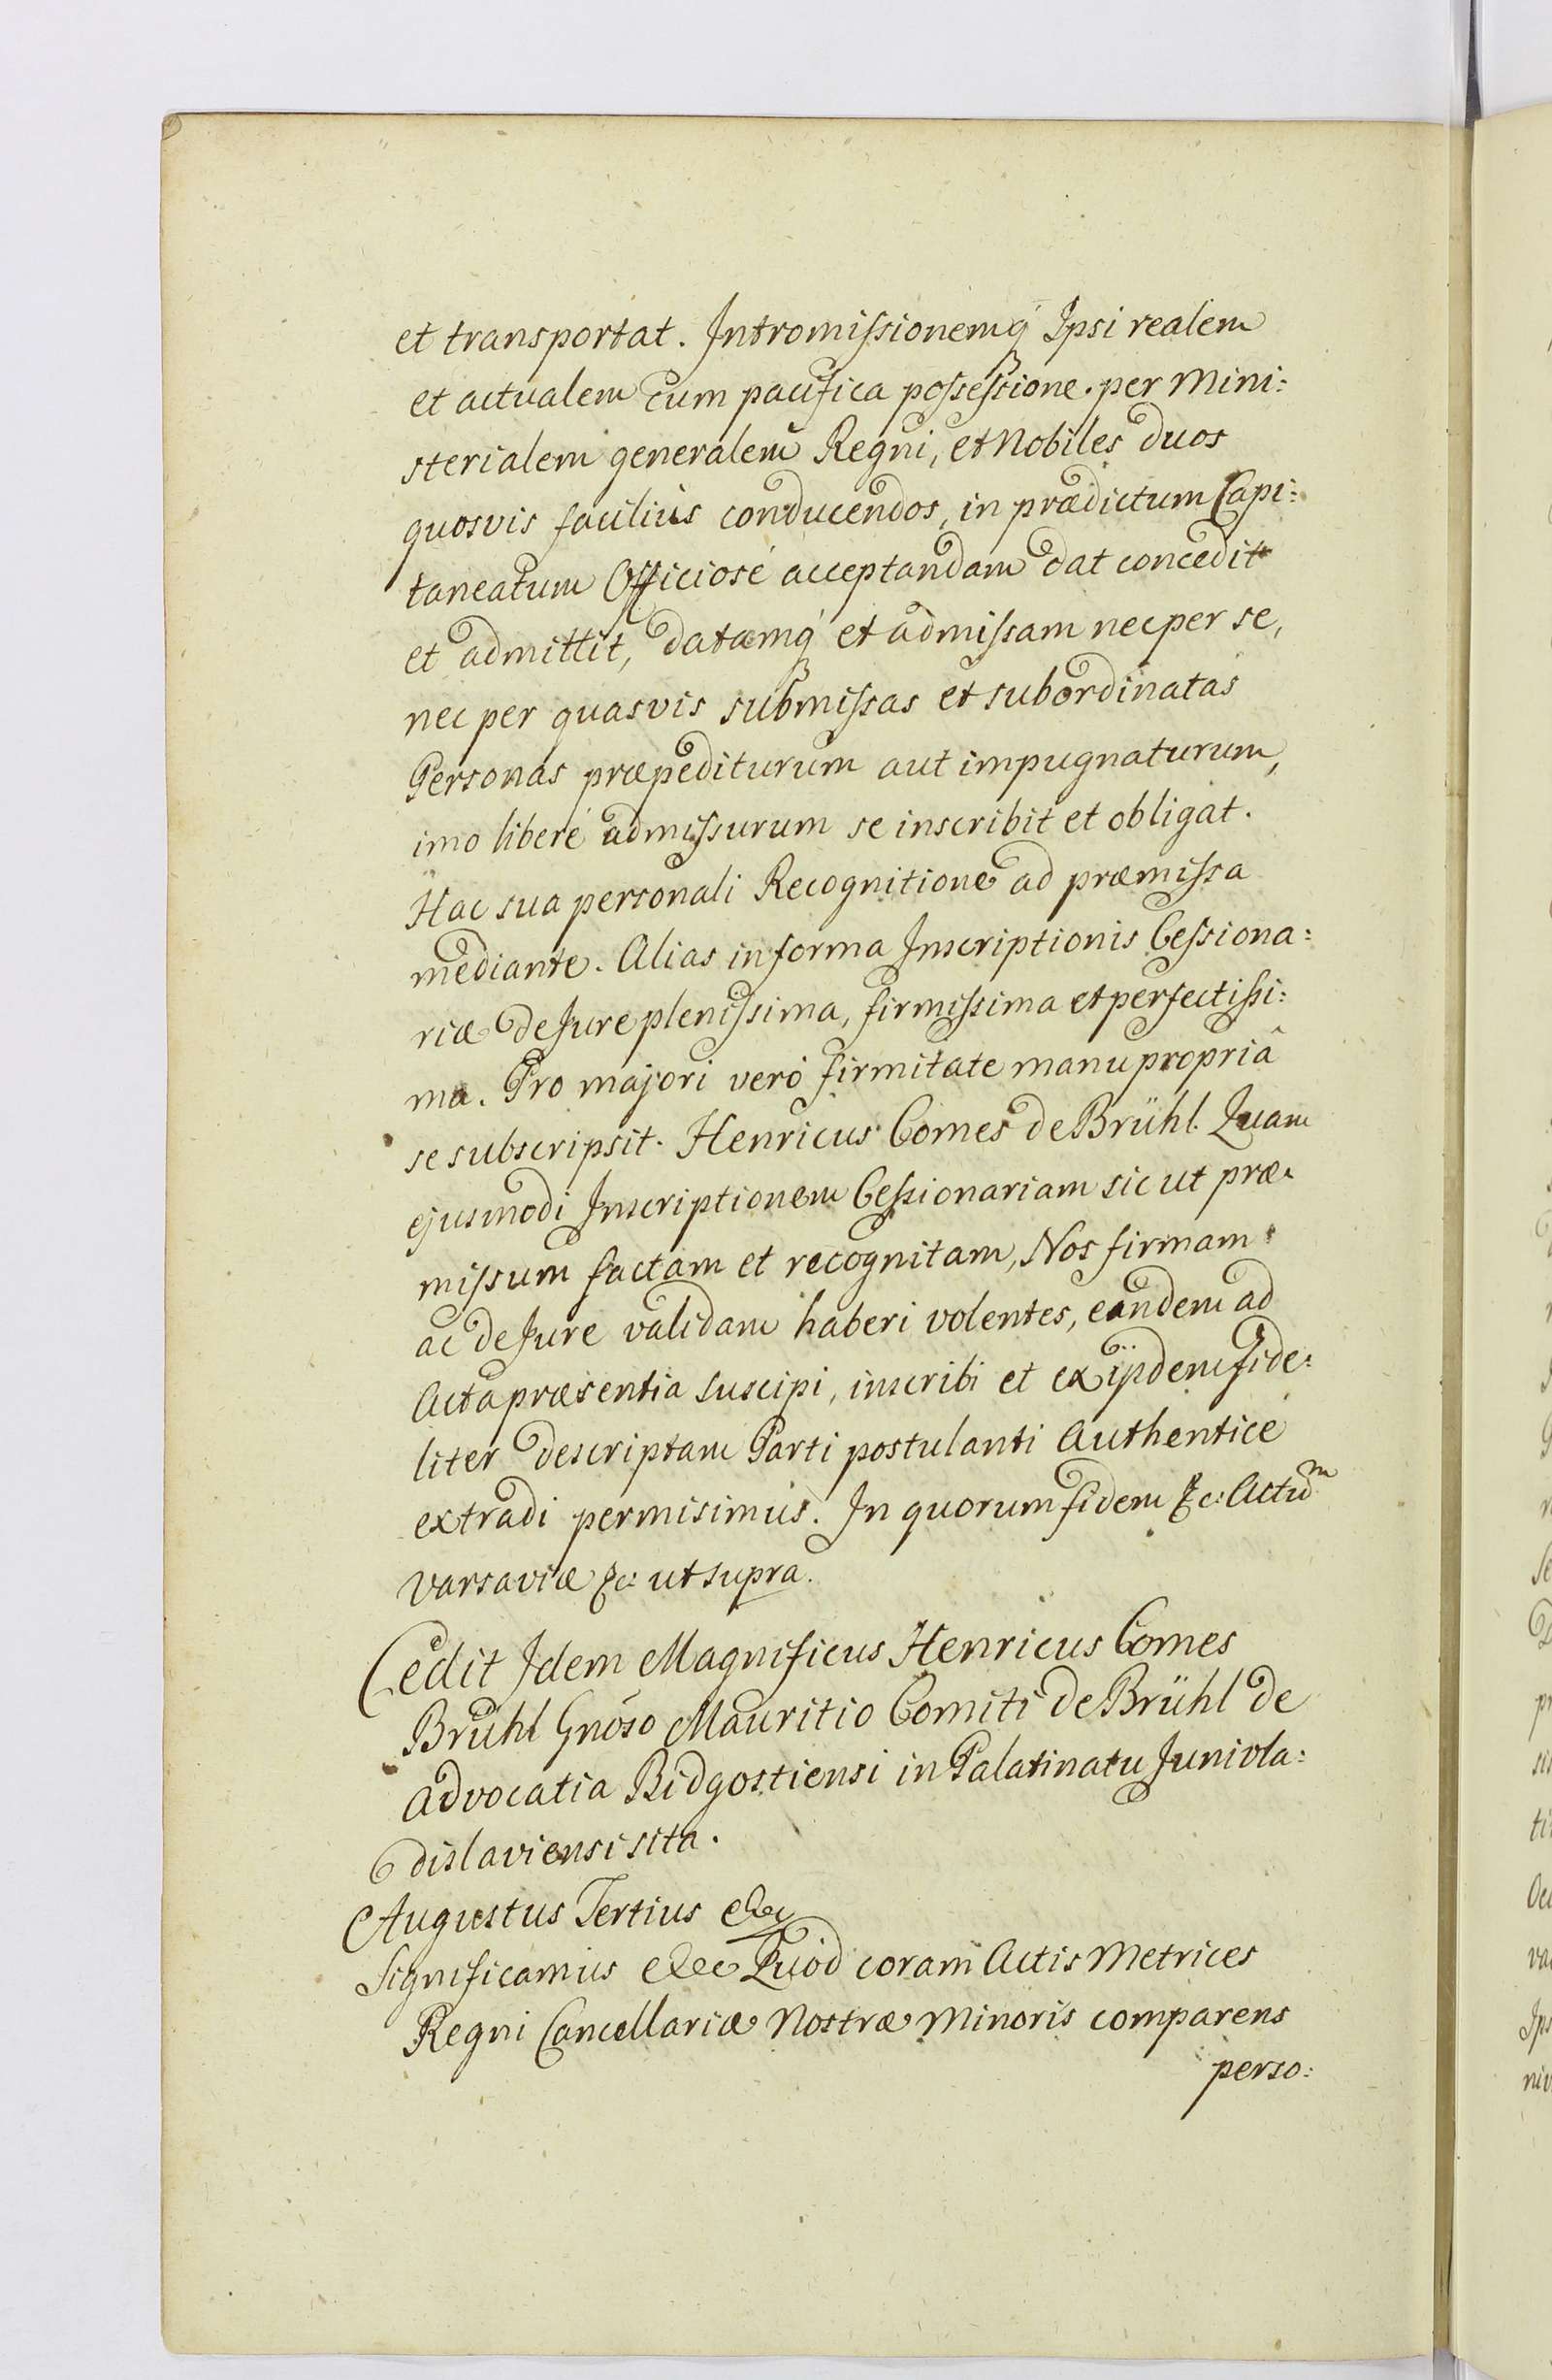 et transportat. Intromissionemq́ Ipsi realem
et actualem cum pacifica possessione per Mini:
sterialem generalem Regni, et Nobiles duos
quosvis faciliùs conducendos, in prædictum Capi:
taneatum Officiosè acceptandam dat concedit
et admittit, datamq́ et admissam nec per se,
nec per quasvis submissas et subordinatas
Personas præpediturum aut impugnaturum,
imo liberè admissurum se inscribit et obligat.
Hac sua personali Recognitione ad præmissa
mediante. Alias in forma Inscriptionis Cessiona:
riæ de Jure plenissima, firmissima et perfectissi:
ma. Pro majori verò firmitate manu propriâ
se subscripsit. Henricus Comes de Brühl. Quam
ejusmodi Inscriptionem Cessionariam sic ut præ:
missum factam et recognitam, Nos firmam
ac de Jure validam haberi volentes, eandem ad
Acta præsentia suscipi, inscribi et ex iisdem fide:
liter descriptam Parti postulanti Authenticè
extradi permisimus. In quorum fidem &c: Actum
Varsaviæ &c: ut supra.
Cedit Idem Magnificus Henricus Comes
Brühl Gnóso Mauritio Comiti de Brühl de
Advocatia Bidgostiensi in Palatinatu Junivla:
dislaviensi sita.
Augustus Tertius &c
Significamus &c Quod coram Actis Metrices
Regni Cancellariæ Nostræ Minoris comparens
perso: